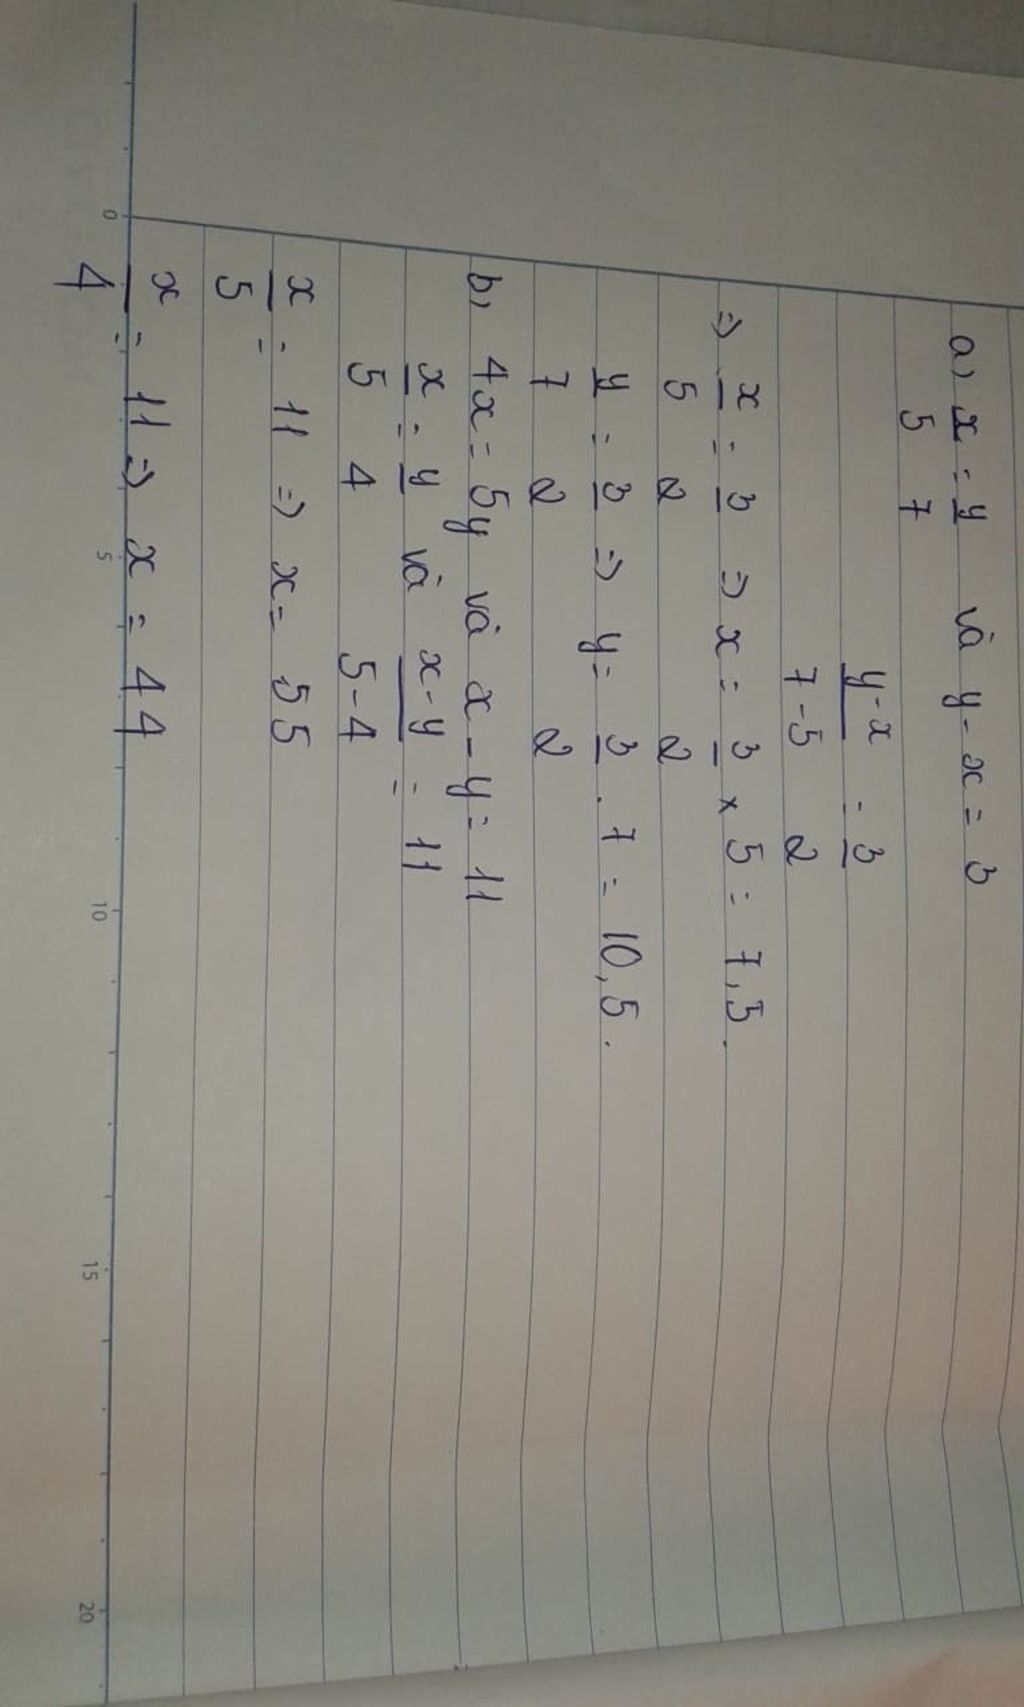 a) x/5 = y/7 và y - x = 3
y-x/7-5 = 3/2
=> x/5 = 3/2 => x = 3/2 × 5 = 7,5.
y/7 = 3/2 => y = 3/2 . 7 = 10,5.
b) 4x = 5y và x - y = 11
x/5 = y/4 và x-y/5-4 = 11
x/5 = 11 => x = 55
x/4 = 11 => x = 44
0 5 10 15 20